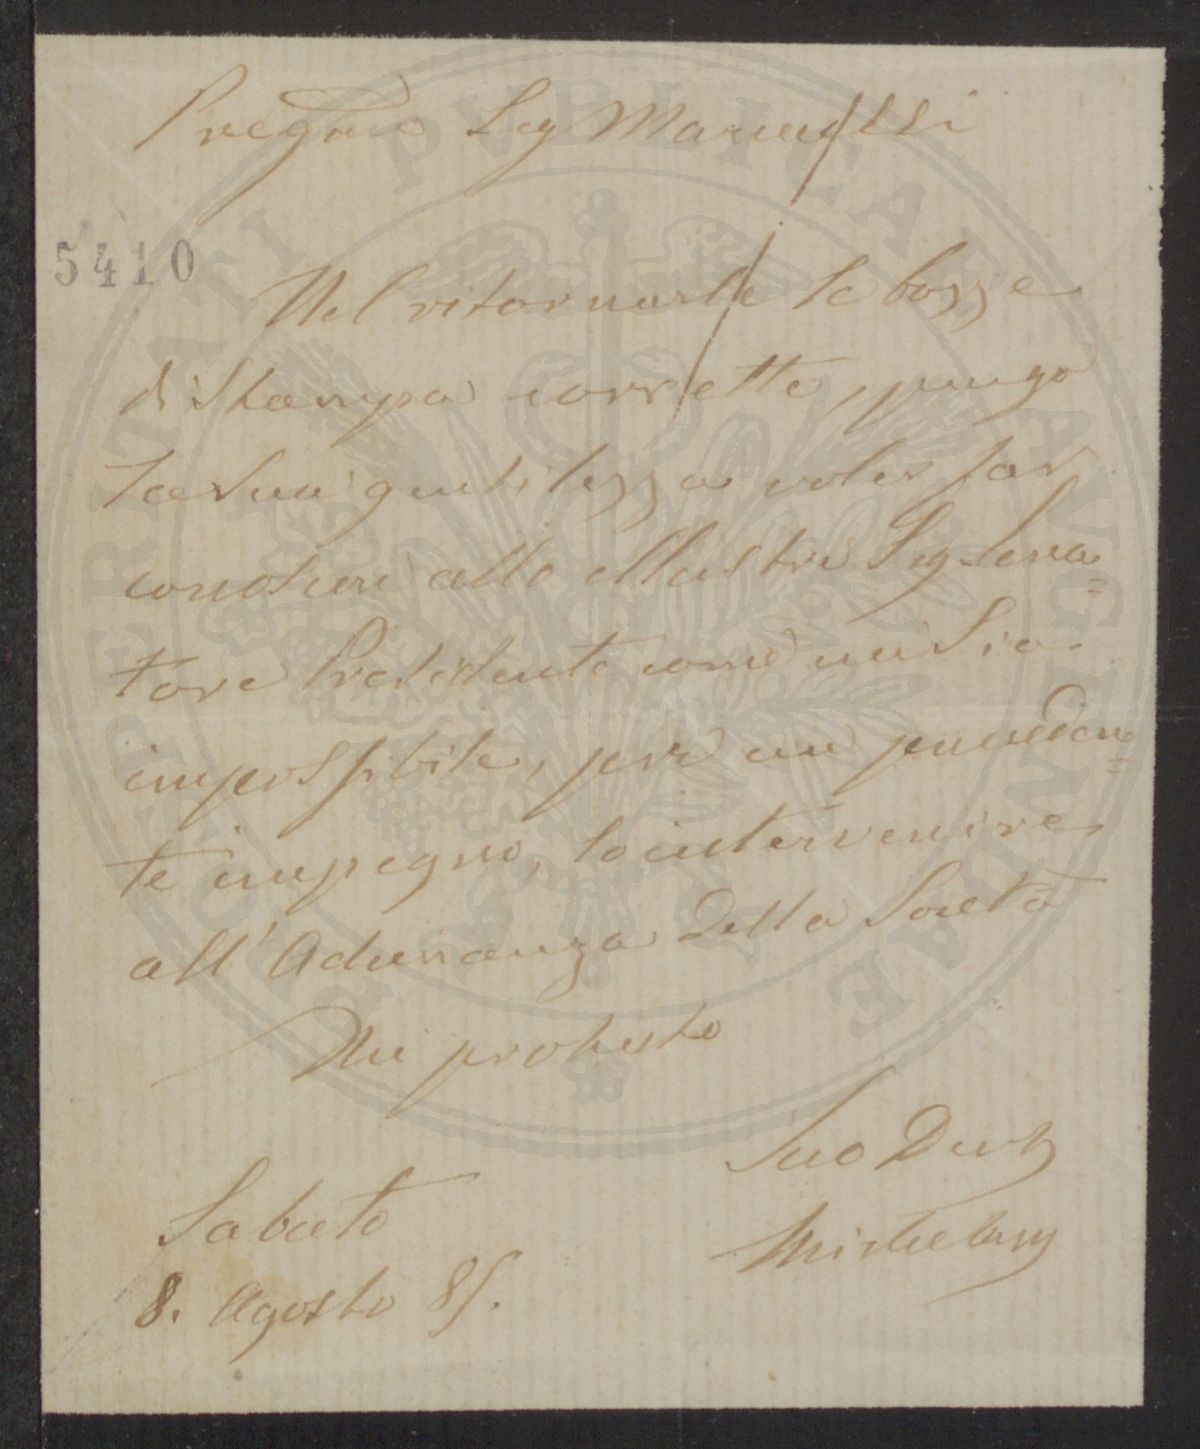 Pregmo Sig Marucelli
5410
Nel ritornarle le bozze
di Stampa corrette, prego
la sua gentilezza voler far
conoscere allo Illustre Sig. Sena=
tore Presidente come mi sia
impossibile, per un preceden=
te impegno, lo intervenire
all'Adunanza della Società
Mi protesto
Suo Devo
Sabato
8. Agosto 85.
PROSPERITATI PVBLICAE AVGENDAE